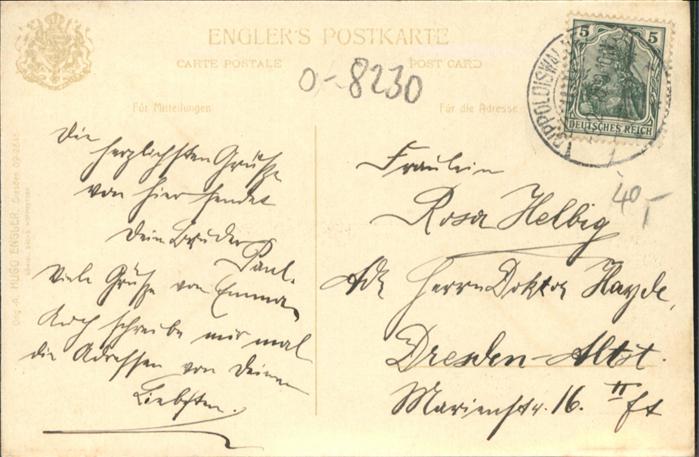 ENGLER'S POSTKARTE
CARTE POSTALE POST CARD
o-8230
Für Mitteilungen
Für die Adresse
5 5
DEUTSCHES REICH
DIPPOLDISWAL
40,-
HUGO ENGLER, Dresden
Die
herzlichsten Grüße
von hier sendet
Dein Bruder
Paul.
Viele Grüße von Emma,
Auch schreibe mir mal
die Adressen von Deinen
Liebsten.
Fräulein
Rosa Helbig
Adr Herrn Doktor Hayde,
Dresden-Altst.
Marienstr. 16. II